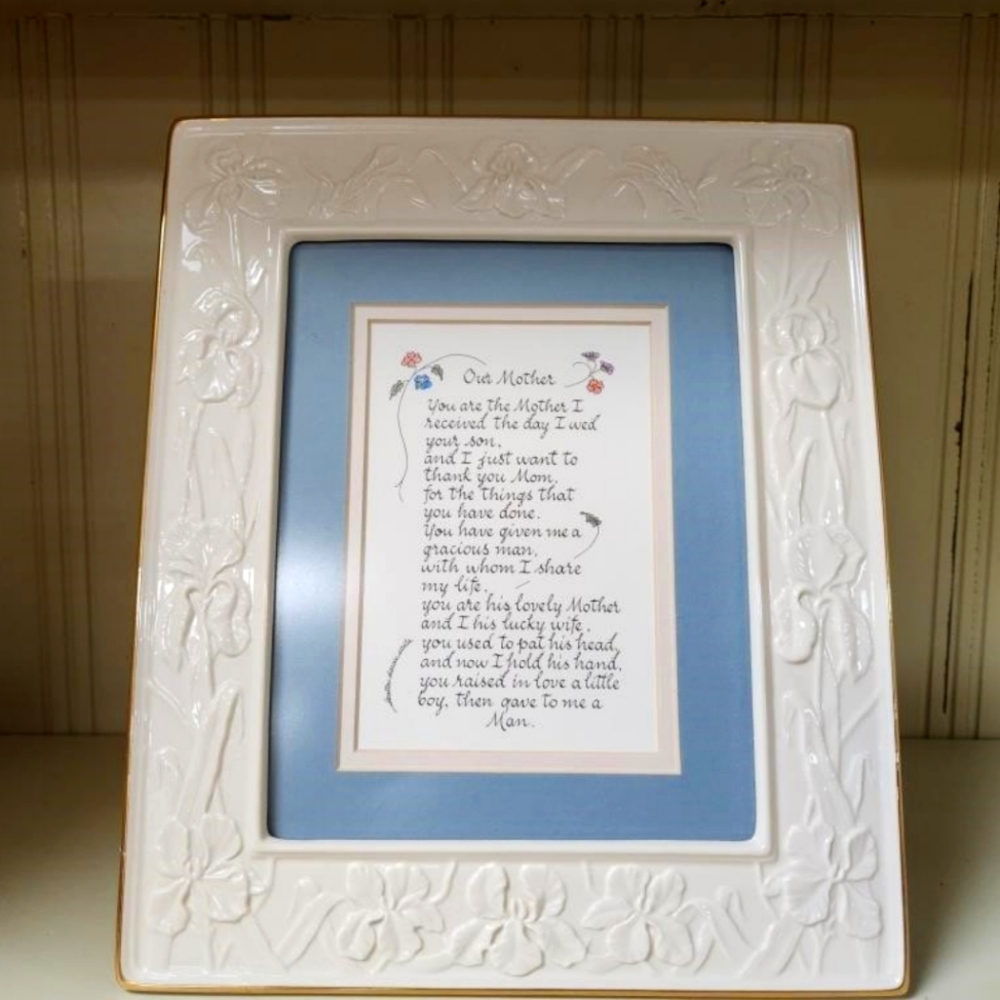 Our Mother
You are the Mother I
received the day I wed
your son,
and I just want to
thank you Mom,
for the things that
you have done.
You have given me a
gracious man,
with whom I share
my life,
you are his lovely Mother
and I his lucky wife,
you used to pat his head,
and now I hold his hand,
you raised in love a little
boy, then gave to me a
Man.